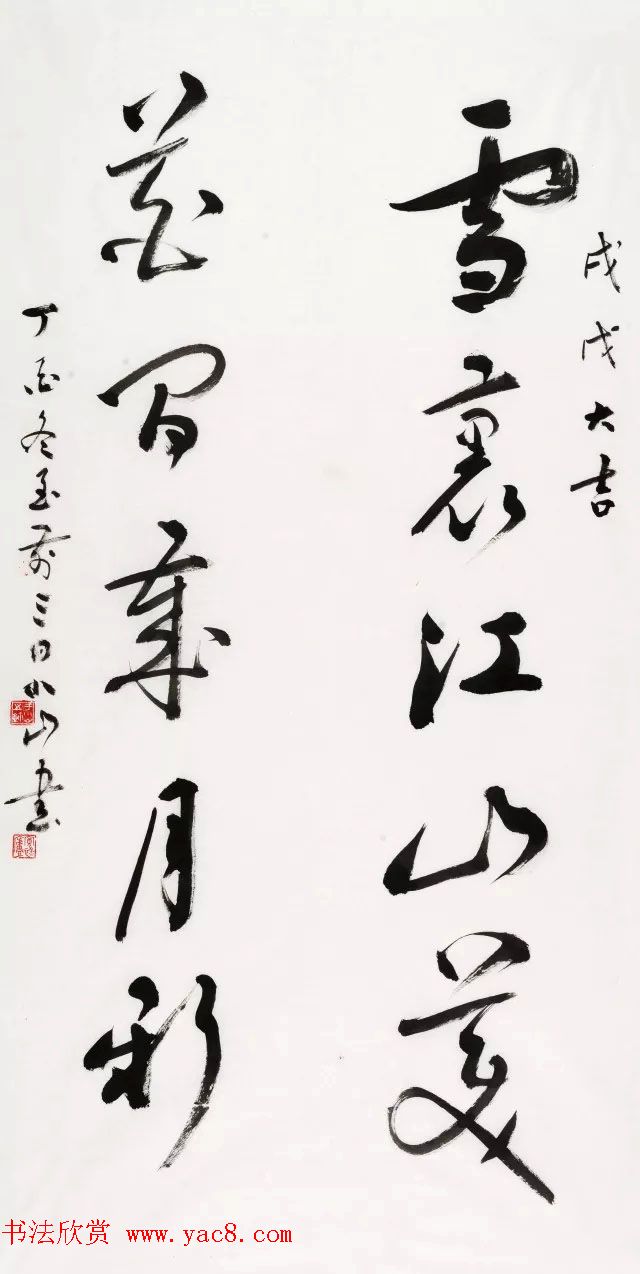 戊戌大吉
雪裏江山美
花間歲月新
丁酉冬至前三日小山書
书法欣赏 www.yac8.com